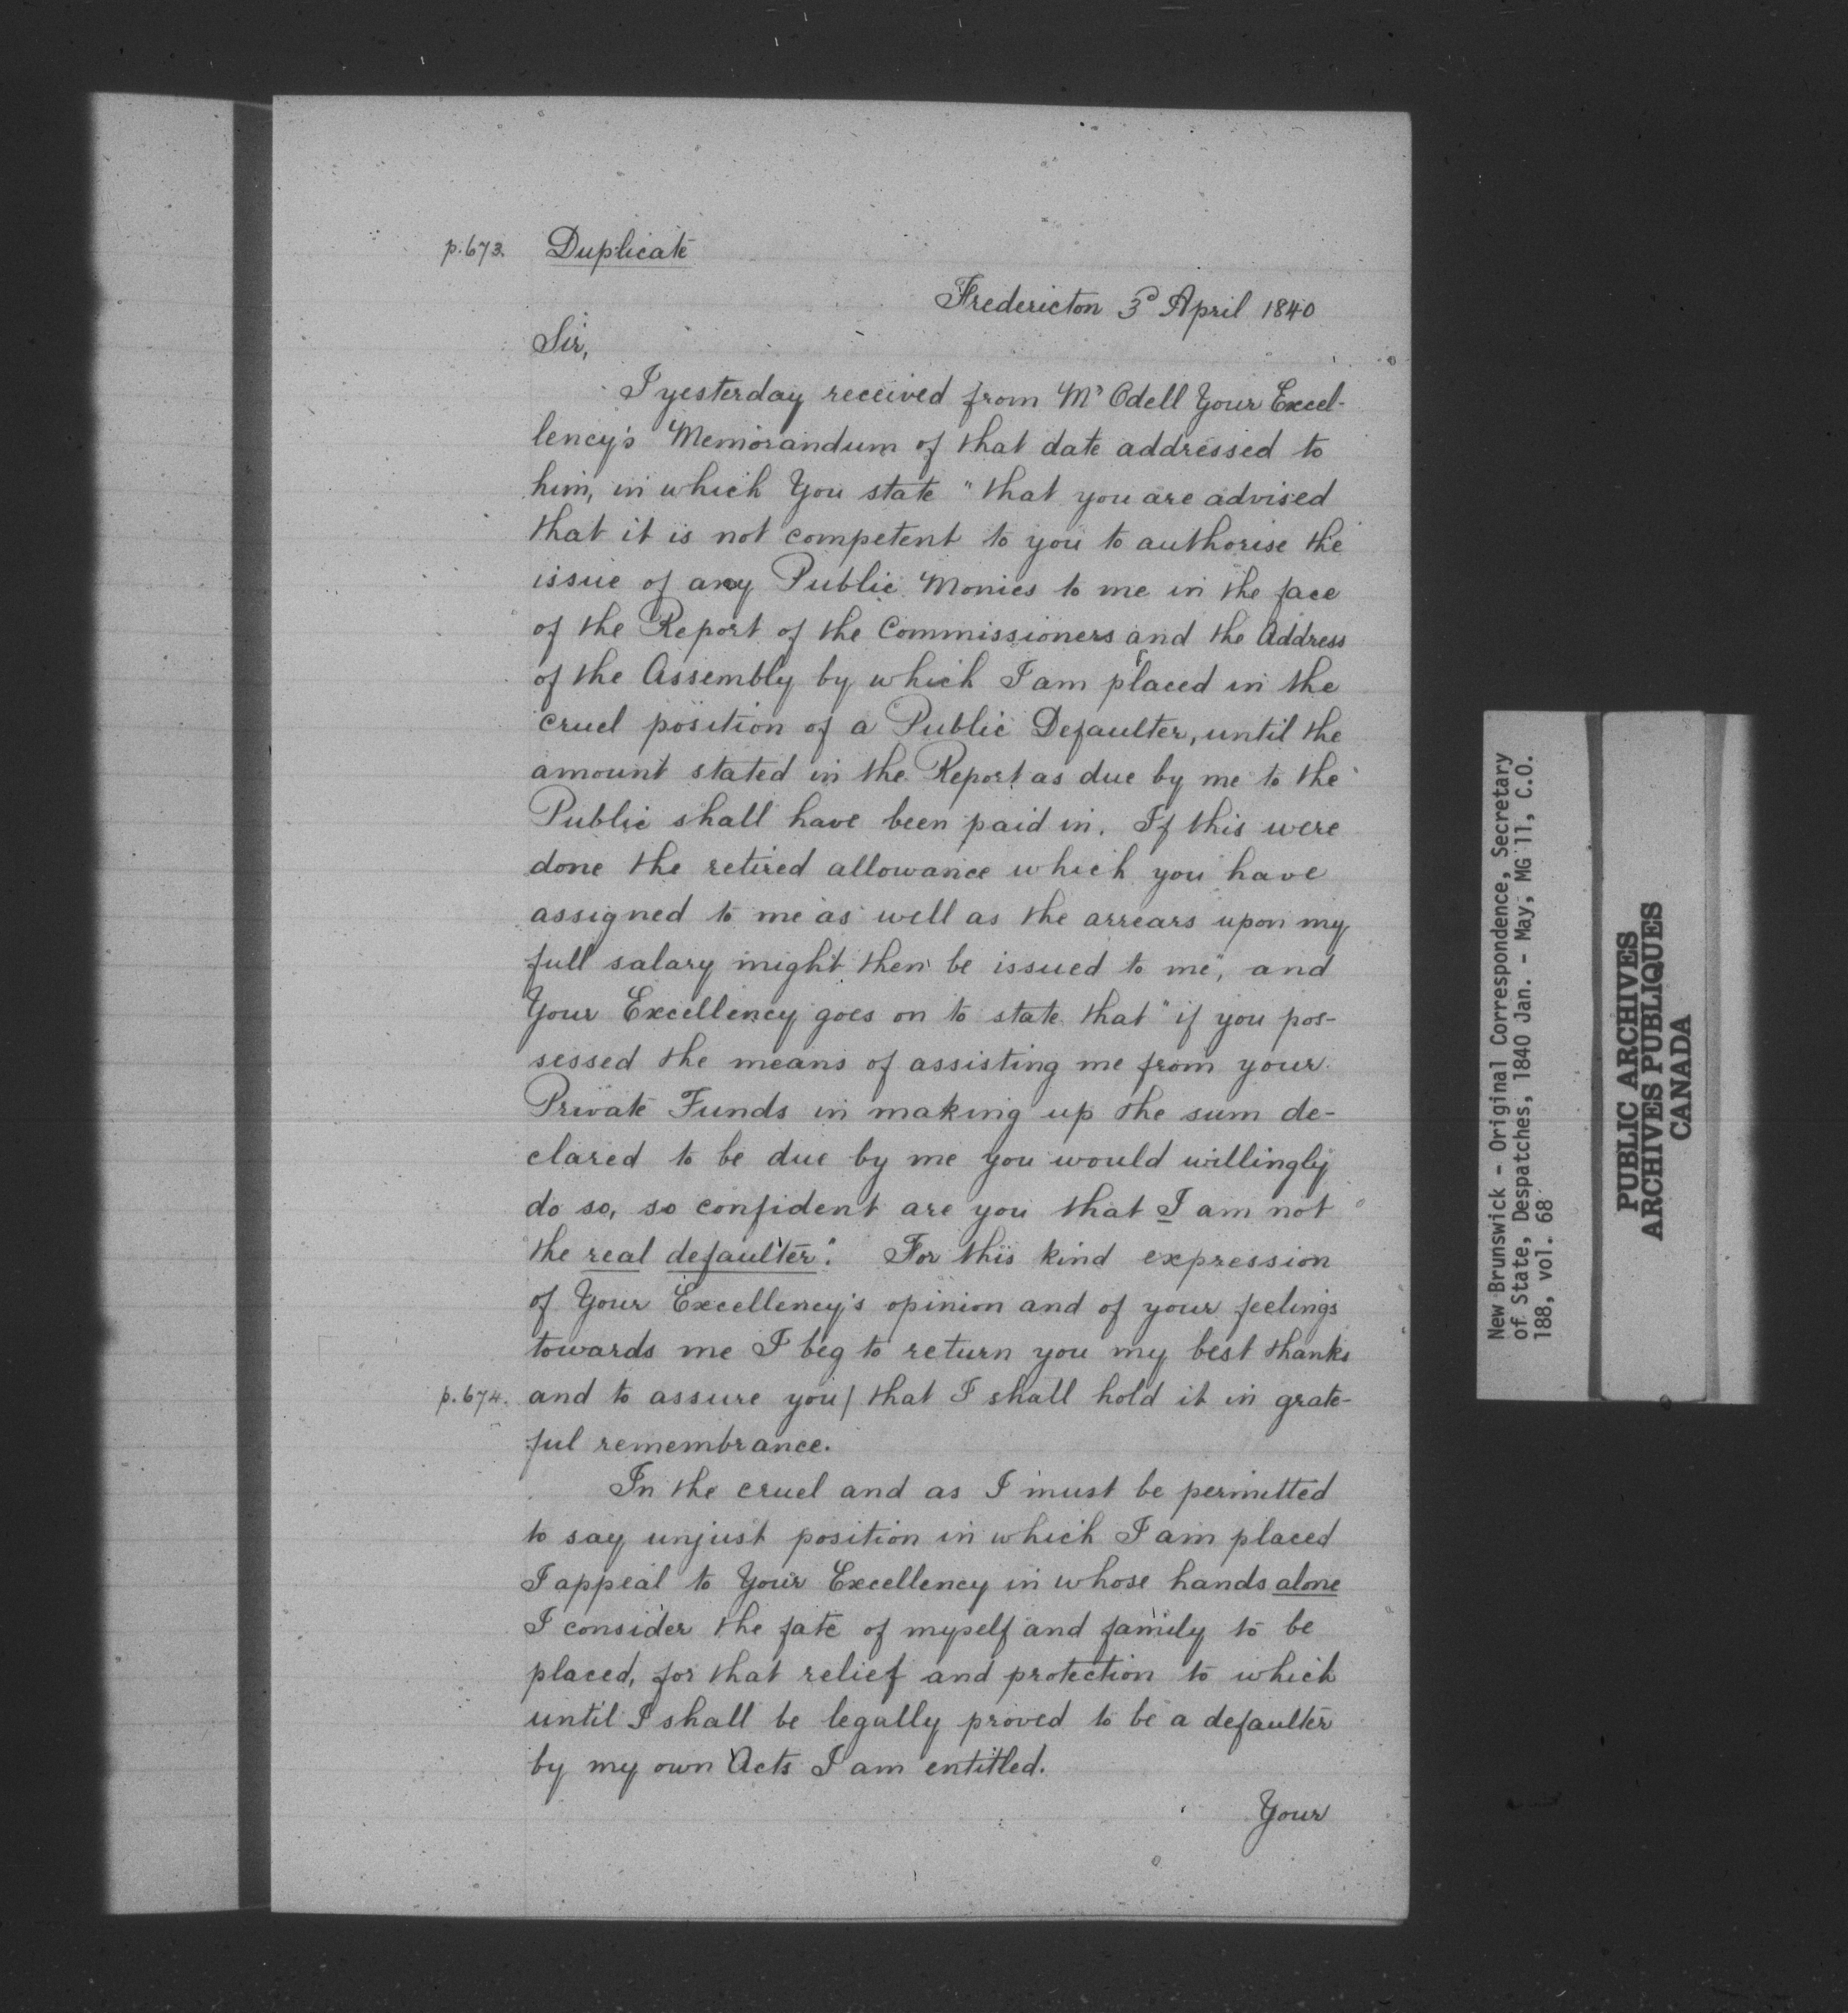 p.673. Duplicate
Fredericton 3d April 1840
Sir,
I yesterday received from Mr Odell Your Excel-
lency's Memorandum of that date addressed to
him, in which You state "that you are advised
that it is not competent to you to authorise the
issue of any Public Monies to me in the face
of the Report of the Commissioners and the Address
of the Assembly by which I am placed in the
cruel position of a Public Defaulter, until the
amount stated in the Report as due by me to the
Public shall have been paid in. If this were
done the retired allowance which you have
assigned to me as well as the arrears upon my
full salary might then be issued to me", and
Your Excellency goes on to state that "if you pos-
sessed the means of assisting me from your
Private Funds in making up the sum de-
clared to be due by me you would willingly
do so, so confident are you that I am not
the real defaulter". For this kind expression
of Your Excellency's opinion and of your feelings
towards me I beg to return you my best thanks
p.674. and to assure you/ that I shall hold it in grate-
ful remembrance.
In the cruel and as I must be permitted
to say unjust position in which I am placed
I appeal to Your Excellency in whose hands alone
I consider the fate of myself and family to be
placed, for that relief and protection to which
until I shall be legally proved to be a defaulter
by my own Acts I am entitled.
Your
New Brunswick - Original Correspondence, Secretary
of State, Despatches, 1840 Jan. - May, MG 11, C.O.
188, vol. 68
PUBLIC ARCHIVES
ARCHIVES PUBLIQUES
CANADA